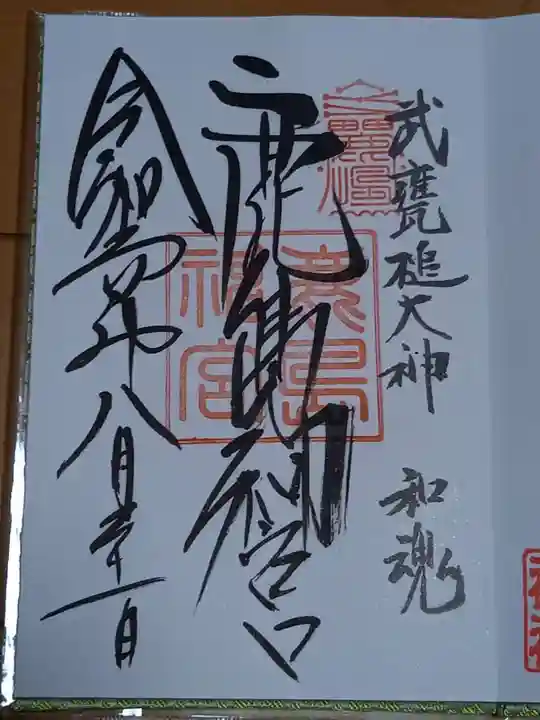 武甕槌大神 和魂
鹿島神宮
鹿島神宮
令和 年八月 十一日